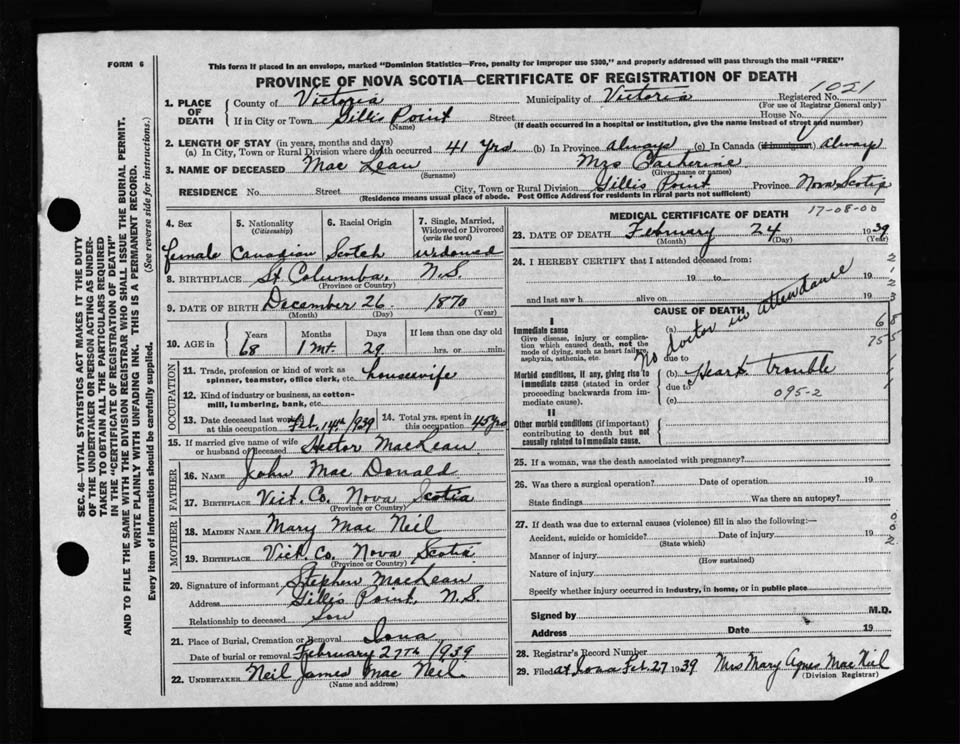 FORM 6
This form if placed in an envelope, marked "Dominion Statistics—Free, penalty for improper use $300," and properly addressed will pass through the mail "FREE"
PROVINCE OF NOVA SCOTIA—CERTIFICATE OF REGISTRATION OF DEATH
1021
1. PLACE OF DEATH County of Victoria Municipality of Victoria Registered No.
(For use of Registrar General only)
If in City or Town Gillis Point Street House No.
(Name) (If death occurred in a hospital or institution, give the name instead of street and number)
2. LENGTH OF STAY (in years, months and days)
(a) In City, Town or Rural Division where death occurred 41 yrs (b) In Province always (c) In Canada (if immigrant) always
3. NAME OF DECEASED Mac Lean Mrs Catherine
(Surname) (Given name or names)
RESIDENCE No. Street City, Town or Rural Division Gillis Point Province Nova Scotia
(Residence means usual place of abode. Post Office Address for residents in rural parts not sufficient)
4. Sex 5. Nationality (Citizenship) 6. Racial Origin 7. Single, Married, Widowed or Divorced (write the word)
female Canadian Scotch widowed
8. BIRTHPLACE St Columba, N.S.
(Province or Country)
9. DATE OF BIRTH December 26 1870
(Month) (Day) (Year)
10. AGE in Years Months Days If less than one day old
68 1 Mt. 29 hrs. or min.
OCCUPATION
11. Trade, profession or kind of work as spinner, teamster, office clerk, etc. housewife
12. Kind of industry or business, as cotton-mill, lumbering, bank, etc.
13. Date deceased last worked at this occupation Feb. 14th 1939 14. Total yrs. spent in this occupation 45 yrs
15. If married give name of wife or husband of deceased Hector MacLean
FATHER
16. NAME John Mac Donald
17. BIRTHPLACE Vict. Co. Nova Scotia
(Province or Country)
MOTHER
18. MAIDEN NAME Mary Mac Neil
19. BIRTHPLACE Vict. Co. Nova Scotia
(Province or Country)
20. Signature of informant Stephen MacLean
Address Gillis Point, N.S.
Relationship to deceased son
21. Place of Burial, Cremation or Removal Iona
Date of burial or removal February 27th 1939
22. UNDERTAKER Neil James Mac Neil
(Name and address)
MEDICAL CERTIFICATE OF DEATH 17-08-00
23. DATE OF DEATH February 24 1939
(Month) (Day) (Year)
24. I HEREBY CERTIFY that I attended deceased from:
19 to 19
and last saw h alive on 19
no doctor in attendance
CAUSE OF DEATH
I
Immediate cause (a)
Give disease, injury or complication which caused death, not the mode of dying, such as heart failure, asphyxia, asthenia, etc.
due to
Morbid conditions, if any, giving rise to immediate cause (stated in order proceeding backwards from immediate cause).
(b) Heart trouble
due to
(c) 095-2
II
Other morbid conditions (if important) contributing to death but not causally related to immediate cause.
25. If a woman, was the death associated with pregnancy?
26. Was there a surgical operation? Date of operation 19
State findings Was there an autopsy?
27. If death was due to external causes (violence) fill in also the following:—
Accident, suicide or homicide? Date of injury 19
(State which)
Manner of injury
(How sustained)
Nature of injury
Specify whether injury occurred in industry, in home, or in public place
Signed by M.D.
Address Date 19
28. Registrar's Record Number
29. Filed at Iona Feb. 27 1939 Mrs Mary Agnes Mac Neil
(Division Registrar)
SEC. 46—VITAL STATISTICS ACT MAKES IT THE DUTY
OF THE UNDERTAKER OR PERSON ACTING AS UNDER-
TAKER TO OBTAIN ALL THE PARTICULARS REQUIRED
IN THE "CERTIFICATE OF REGISTRATION OF DEATH"
AND TO FILE THE SAME WITH THE DIVISION REGISTRAR WHO SHALL ISSUE THE BURIAL PERMIT.
WRITE PLAINLY WITH UNFADING INK. THIS IS A PERMANENT RECORD.
Every item of information should be carefully supplied. (See reverse side for instructions.)